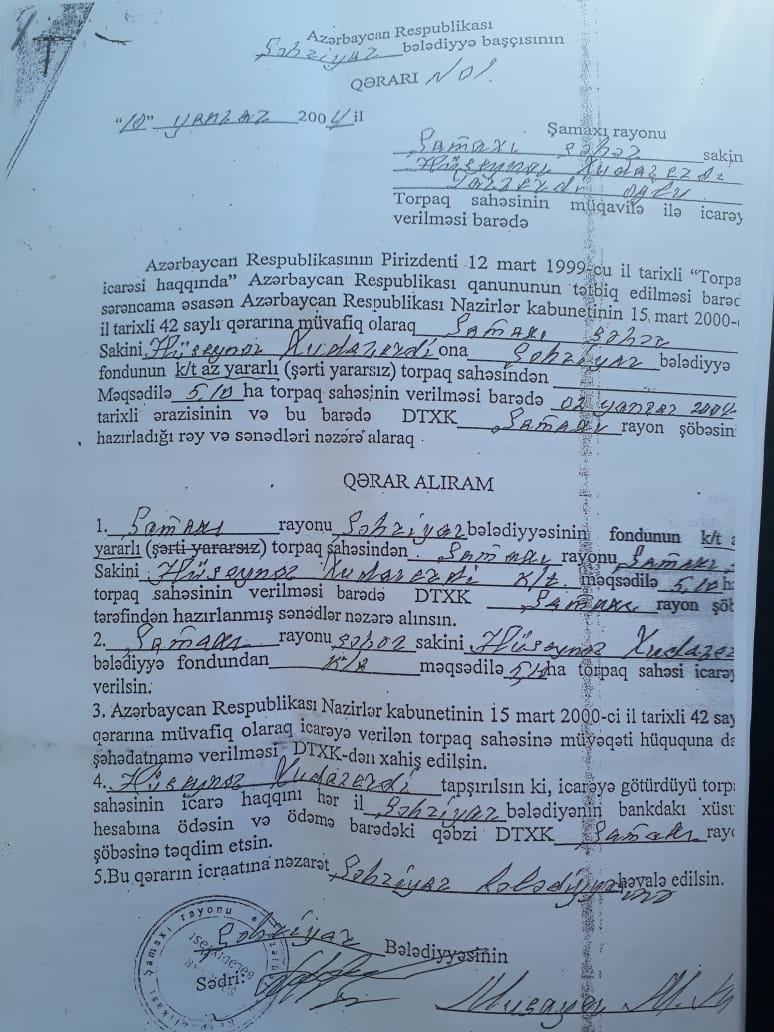 Azərbaycan Respublikası
Şəhriyar bələdiyyə başçısının
QƏRARI № 01.
"10" yanvar 2004 il
Şamaxı rayonu
Şamaxı şəhər sakin
Hüseynov Xudaverdi
oğlu
Torpaq sahəsinin müqavilə ilə icarəy
verilməsi barədə
Azərbaycan Respublikasının Pirizdenti 12 mart 1999-cu il tarixli "Torpa
icarəsi haqqında" Azərbaycan Respublikası qanununun tətbiq edilməsi barəd
sərəncama əsasən Azərbaycan Respublikası Nazirlər kabunetinin 15 mart 2000-
il tarixli 42 saylı qərarına müvafiq olaraq Şamaxı şəhər
Sakini Hüseynov Xudaverdi ona Şəhriyar bələdiyyə
fondunun k/t az yararlı (şərti yararsız) torpaq sahəsindən
Məqsədilə 5,10 ha torpaq sahəsinin verilməsi barədə 02 yanvar 2004
tarixli ərazisinin və bu barədə DTXK Şamaxı rayon şöbəsin
hazırladığı rəy və sənədləri nəzərə alaraq
QƏRAR ALIRAM
1. Şamaxı rayonu Şəhriyar bələdiyyəsinin fondunun k/t a
yararlı (şərti yararsız) torpaq sahəsindən Şamaxı rayonu Şamaxı ş
Sakini Hüseynov Xudaverdi k/t. məqsədilə 5,10 h
torpaq sahəsinin verilməsi barədə DTXK Şamaxı rayon şöb
tərəfindən hazırlanmış sənədlər nəzərə alınsın.
2. Şamaxı rayonu şəhər sakini Hüseynov Xudave
bələdiyyə fondundan məqsədilə ha torpaq sahəsi icarəy
verilsin.
3. Azərbaycan Respublikası Nazirlər kabunetinin 15 mart 2000-ci il tarixli 42 say
qərarına müvafiq olaraq icarəyə verilən torpaq sahəsinə müvəqəti hüququna da
şəhədatnamə verilməsi DTXK-dən xahiş edilsin.
4. Hüseynov Xudaverdi tapşırılsın ki, icarəyə götürdüyü torp
sahəsinin icarə haqqını hər il Şəhriyar bələdiyənin bankdakı xüsu
hesabına ödəsin və ödəmə barədəki qəbzi DTXK Şamaxı rayo
şöbəsinə təqdim etsin.
5.Bu qərarın icraatına nəzarət Şəhriyar bələdiyyəsinə həvalə edilsin.
Şəhriyar Bələdiyyəsinin
Sədri:
Musayev